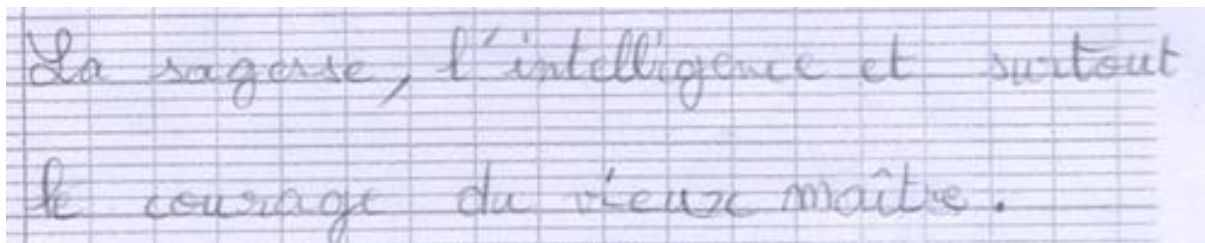 La sagesse, l'intelligence et surtout
le courage du vieux maître.